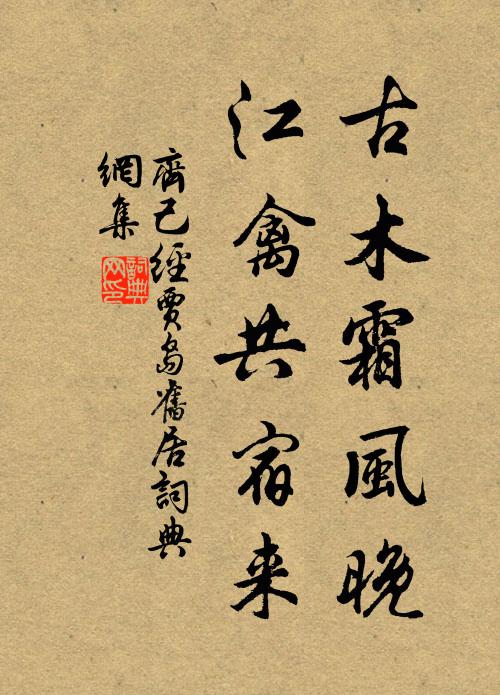 古木霜風晚
江禽共宿来
齊己經賈島舊居詞典
網集
詞典
网印